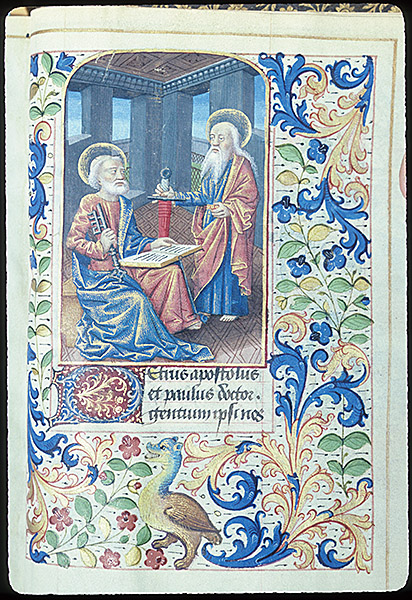 Petrus apostolus
et paulus doctor.
gentium ipsi nos